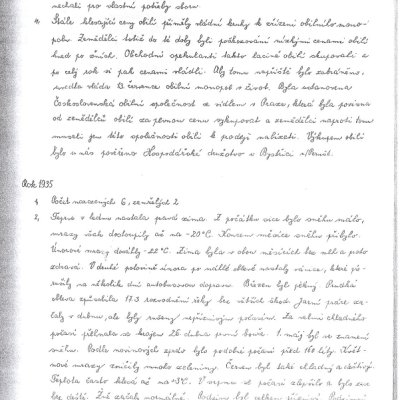 nechati pro vlastní potřeby sboru.
4. Stále klesající ceny obilí přiměly vládní kruhy k zřízení obilního mono-
polu. Zemědělci totiž do té doby byli poškozováni nízkými cenami obilí
hned po žních. Obchodní spekulanti takto laciné obilí skupovali a
po celý rok si pak cenami vládli. Aby tomu napříště bylo zabráněno,
uvedla vláda 13 července obilní monopol v život. Byla ustanovena
Československá obilní společnost se sídlem v Praze, která byla pověřena
od zemědělců obilí za pevnou cenu vykupovat a zemědělci naproti tomu
museli jen této společnosti obilí k prodeji nabízeti. Výkupem obilí
bylo u nás pověřeno Hospodářské družstvo v Bystřici n/Pernšt.
Rok 1935
1. Počet narozených 6, zemřelých 2
2. Teprve v lednu nastala pravá zima. Z počátku sice bylo sněhu málo,
mrazy však dostouply až na -20°C. Koncem měsíce sněhu přibylo.
Únorové mrazy dosáhly -22°C. Zima byla v obou měsících bez mlh a proto
zdravá. V druhé polovině února po náhlé oblevě nastaly vánice, které pře-
rušily na několik dní autobusovou dopravu. Březen byl pěkný. Prudká
obleva způsobila 17.3 rozvodnění řeky bez větších škod. Jarní práce za-
čaly v dubnu, ale byly rušeny nepříznivým počasím. Za velmi chladného
počasí přehnala se krajem 26 dubna první bouře. 1. máj byl ve znamení
sněhu. Podle novinových zpráv bylo podobné počasí před 160 lety. Květ-
nové mrazy zničily mnoho zeleniny. Červen byl také chladný a deštivý.
Teplota často klesá až na +3°C. V srpnu se počasí oteplilo a bylo sko-